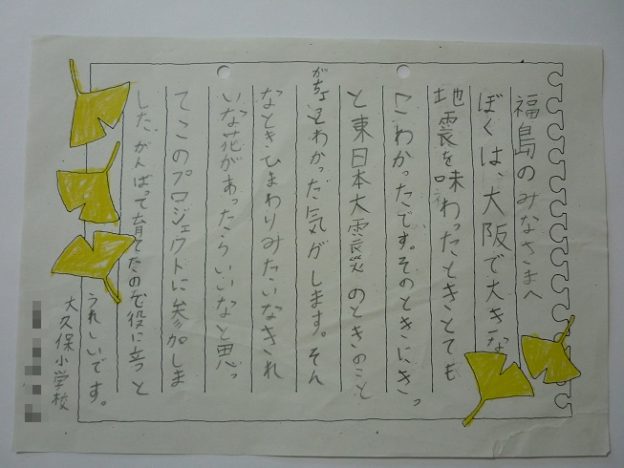 福島のみなさまへ
ぼくは、大阪で大きな
地震を味わったときとても
こわかったです。そのときにきっ
と東日本大震災のときのこと
がちょっとわかった気がします。そん
なときひまわりみたいなきれ
いな花があったらいいなと思っ
てこのプロジェクトに参加しま
した。がんばって育てたので役に立つと
うれしいです。
大久保小学校